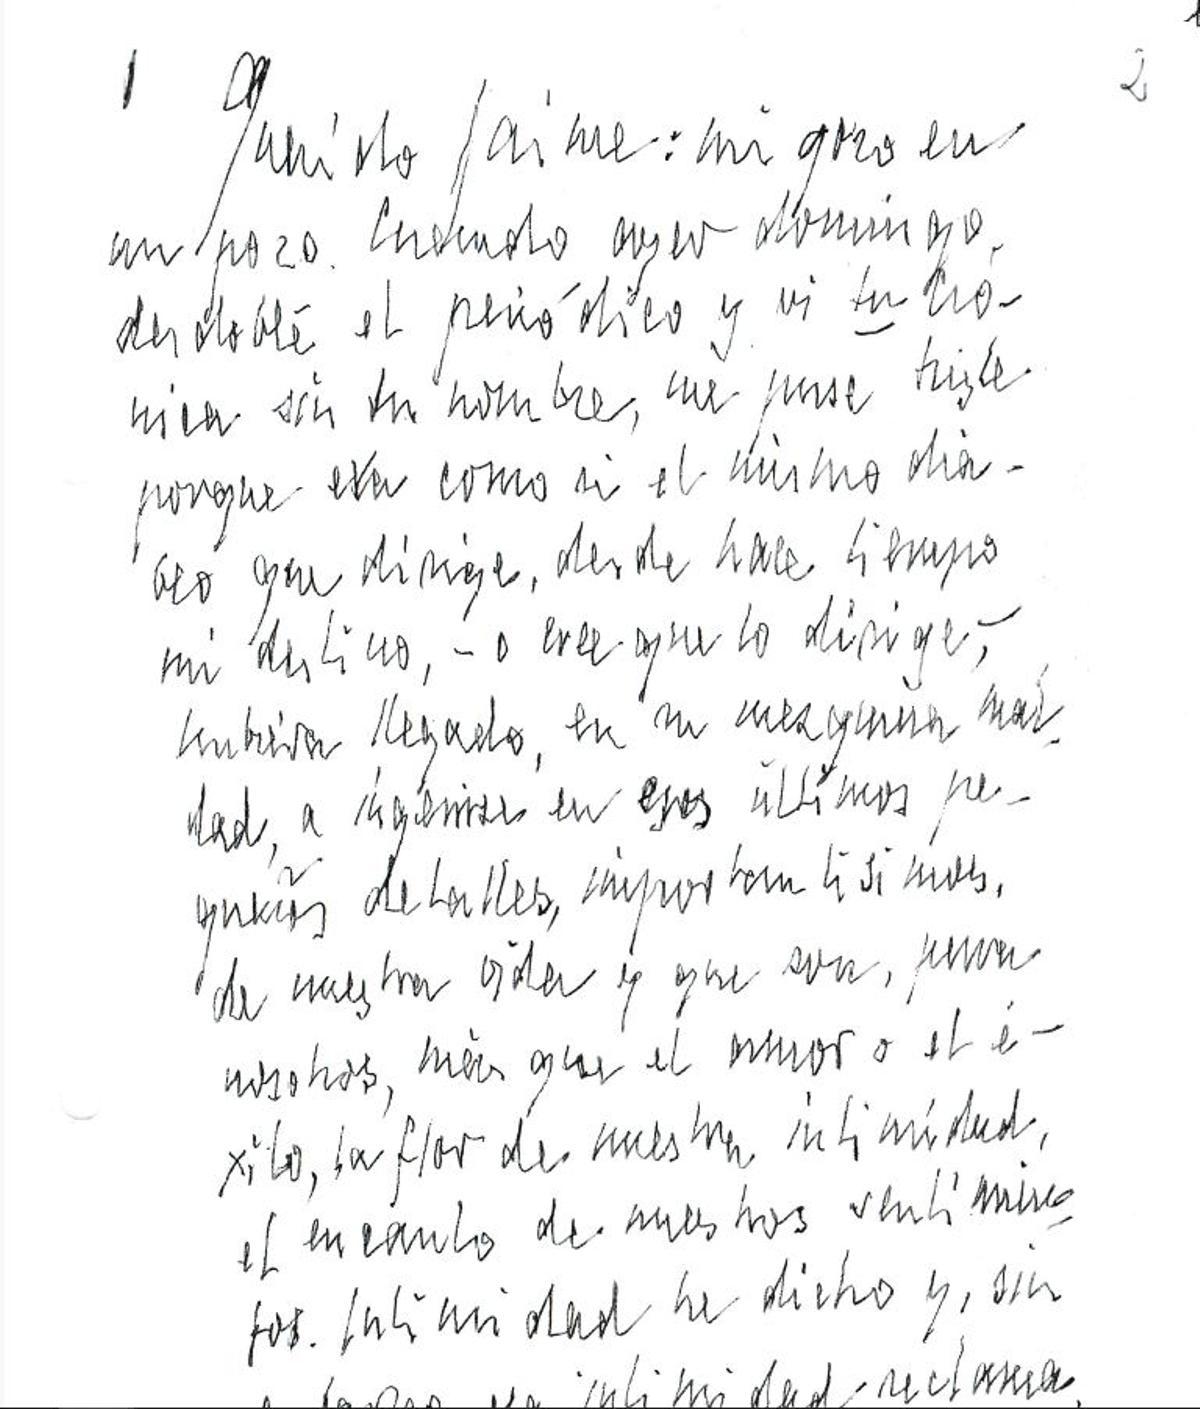 1 2
Querido Jaime: mi gozo en
un pozo. Cuando ayer domingo,
desdoblé el periódico y vi tu cró-
nica sin tu nombre, me puse triste
porque era como si el mismo dia-
blo que dirige, desde hace tiempo
mi destino, - o cree que lo dirige, -
hubiera llegado, en su mezquina mal-
dad, a ingeniarse en esos últimos pe-
queños detalles, importantísimos,
de nuestra vida y que son, para
nosotros, más que el amor o el é-
xito, la flor de nuestra intimidad,
el encanto de nuestros sentimien-
tos. Intimidad he dicho y, sin
intimidad reclama,